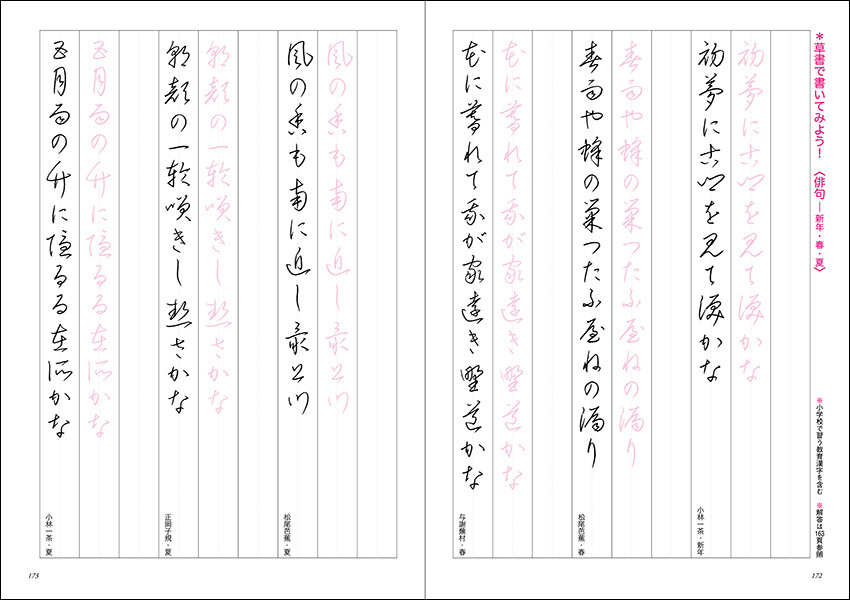 *草書で書いてみよう！〈俳句―新年・春・夏〉
※小学校で習う教育漢字を含む ※解答は163頁参照
初夢に古郷を見て涙かな
初夢に古郷を見て涙かな
小林一茶・新年
春雨や蜂の巣つたふ屋ねの漏り
春雨や蜂の巣つたふ屋ねの漏り
松尾芭蕉・春
花に暮れて我が家遠き野道かな
花に暮れて我が家遠き野道かな
与謝蕪村・春
172
風の香も南に近し最上川
風の香も南に近し最上川
松尾芭蕉・夏
朝顔の一輪咲きし熱さかな
朝顔の一輪咲きし熱さかな
正岡子規・夏
五月雨の竹に隠るる在所かな
五月雨の竹に隠るる在所かな
小林一茶・夏
173